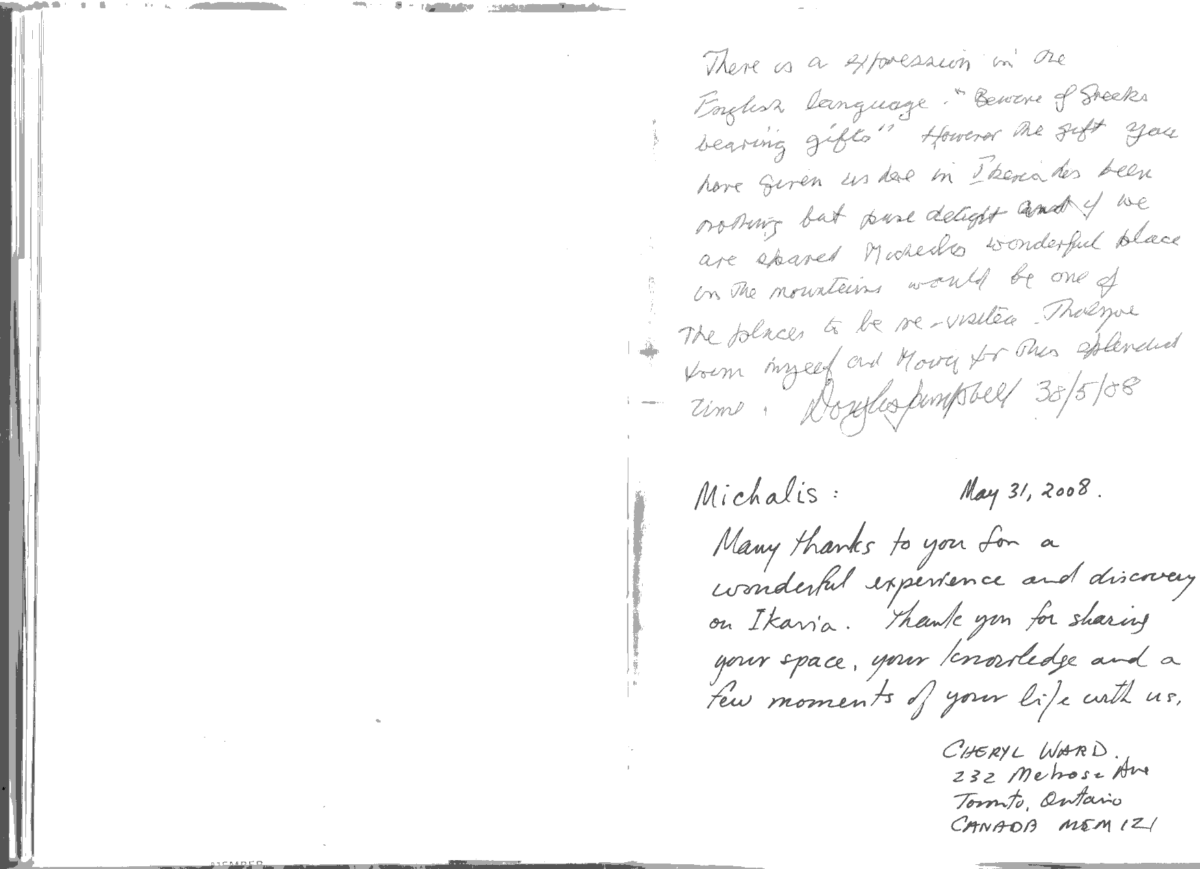 There is a expression in the
English language. "Beware of Greeks
bearing gifts" However the gift you
have given us here in Ikaria has been
nothing but pure delight and if we
are spared wonderful place
in the mountains would be one of
the places to be re-visited.
from myself and for this splendid
time. Douglas 30/5/08
Michalis: May 31, 2008.
Many thanks to you for a
wonderful experience and discovery
on Ikaria. Thank you for sharing
your space, your knowledge and a
few moments of your life with us.
CHERYL WARD.
232 Melrose Ave
Toronto, Ontario
CANADA